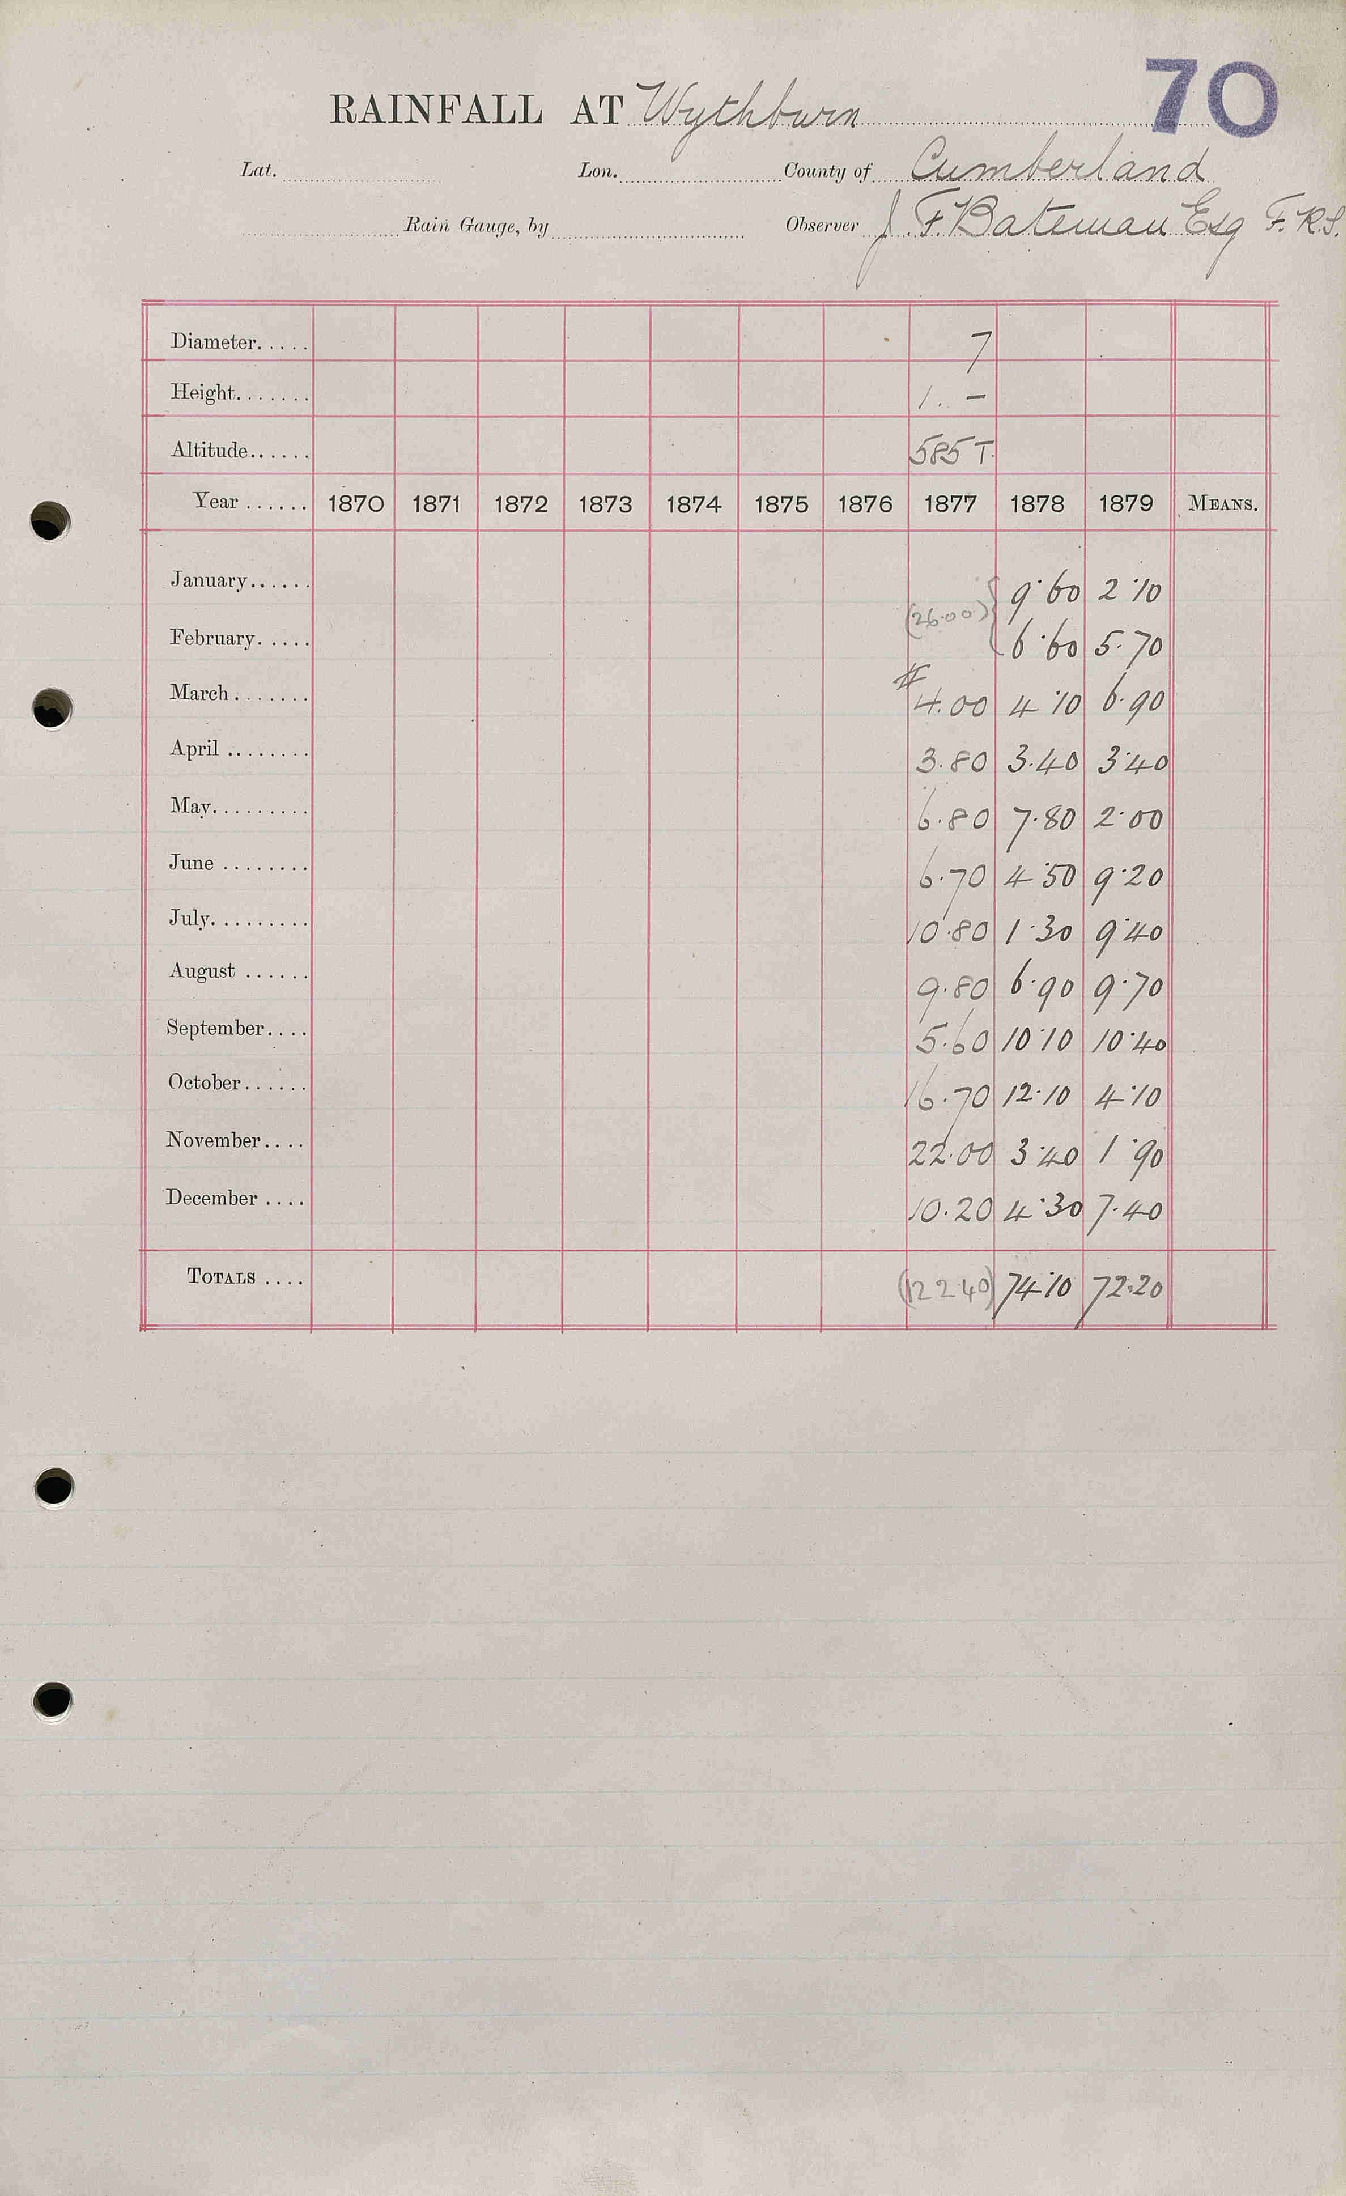 70
RAINFALL AT Wythburn
Lat. Lon. County of Cumberland
Rain Gauge, by Observer J. F. Bateman Esq F.R.S.
Diameter..... 7
Height....... 1. –
Altitude...... 585 T.
Year ...... 1870 1871 1872 1873 1874 1875 1876 1877 1878 1879 MEANS.
January...... 9·60 2·10
(26·00)
February..... 6·60 5·70
March ....... #4.00 4·10 6·90
April ........ 3.80 3.40 3·40
May......... 6.80 7.80 2·00
June ........ 6.70 4·50 9·20
July......... 10.80 1·30 9·40
August ...... 9.80 6·90 9·70
September.... 5.60 10·10 10·40
October...... 16.70 12·10 4·10
November.... 22.00 3·40 1·90
December .... 10.20 4·30 7·40
TOTALS .... (122·40) 74·10 72·20